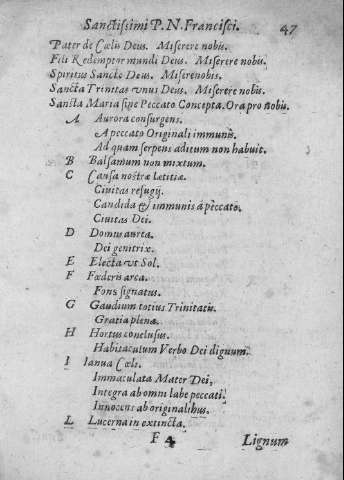 Sanctissimi P. N. Francisci. 47
Pater de Cœlis Deus. Miserere nobis.
Fili Redemptor mundi Deus. Miserere nobis.
Spiritus Sancte Deus. Miserenobis.
Sancta Trinitas vnus Deus. Miserere nobis.
Sancta Maria sine Peccato Concepta. Ora pro nobis.
A Aurora consurgens.
A peccato Originali immunis.
Ad quam serpens aditum non habuit.
B Balsamum non mixtum.
C Causa nostræ Letitiæ.
Civitas refugij.
Candida & immunis á peccato.
Civitas Dei.
D Domus aurea.
Dei genitrix.
E Electa vt Sol.
F Fœderis arca.
Fons signatus.
G Gaudium totius Trinitatis.
Gratia plena.
H Hortus conclusus.
Habitaculum Verbo Dei dignum.
I Ianua Cœli.
Immaculata Mater Dei,
Integra ab omni labe peccati.
Innocens ab originalibus.
L Lucerna in extincta.
F 4 Lignum